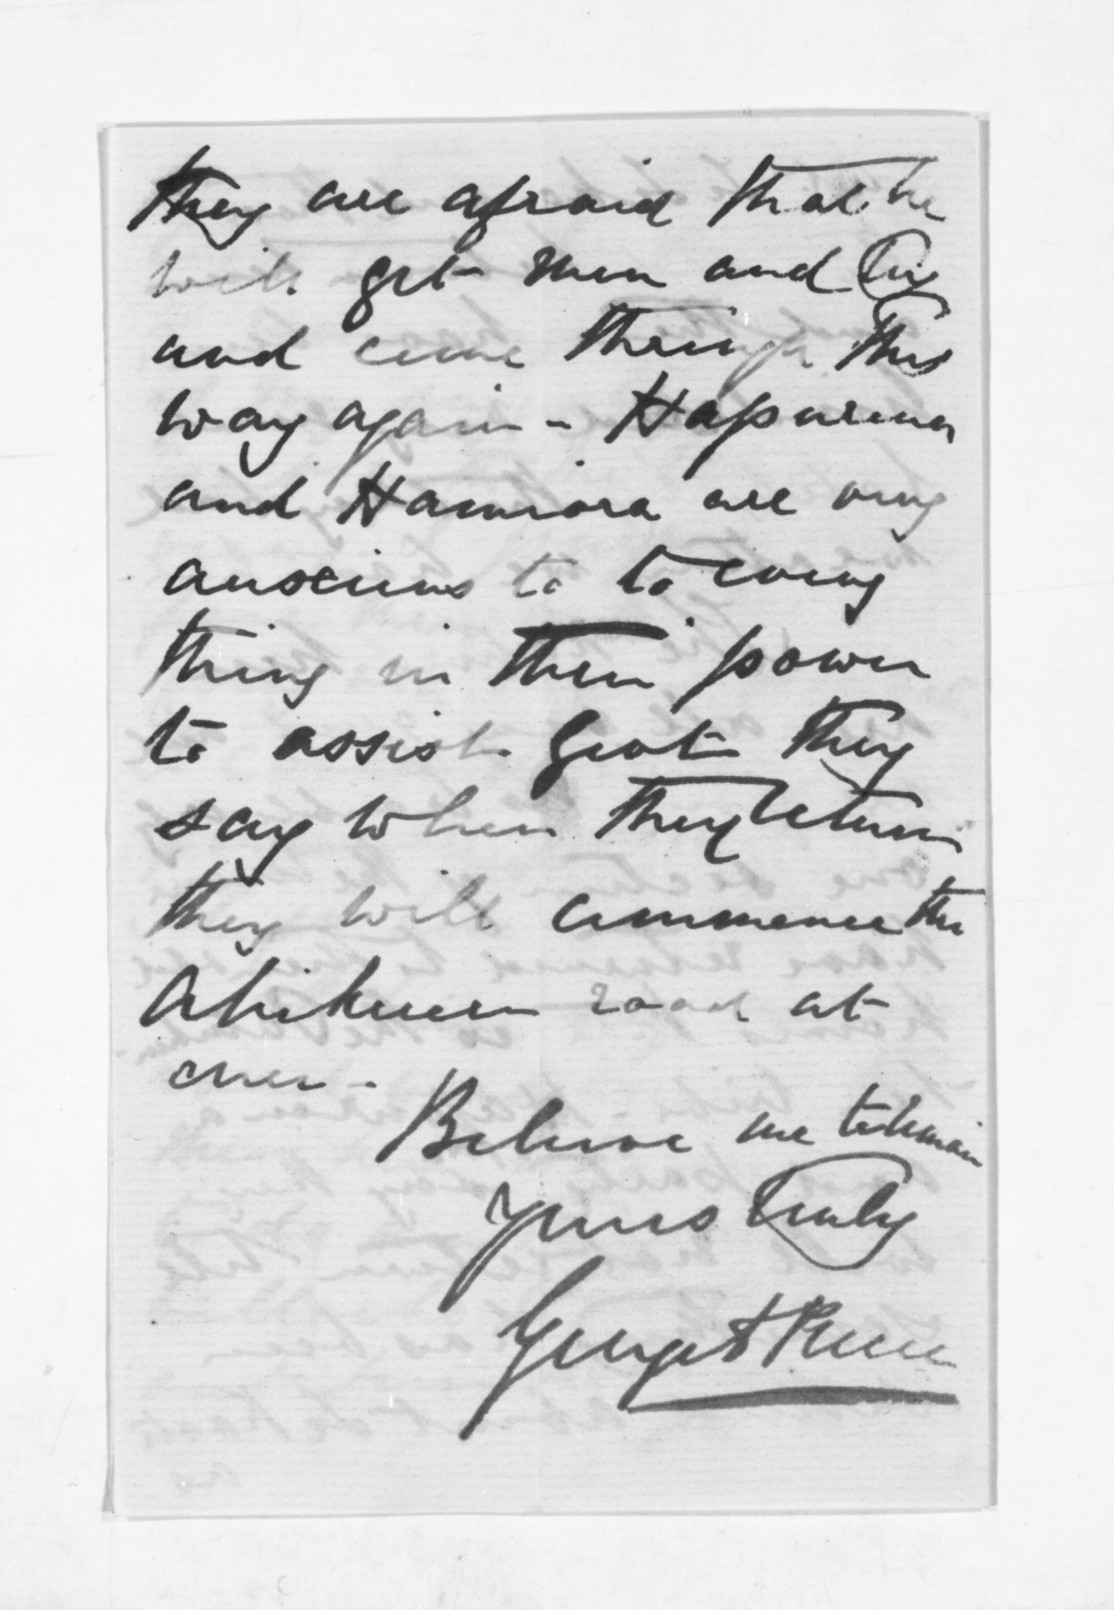 They are afraid that he
will get men and try
and come through this
way again - Hapurona
and Hamiora are very
anxious to to every
thing in their power
to assist Govt they
say when they return
they will commence the
Ahikereru road at
once -
Believe me to remain
Yours truly
George A Preece